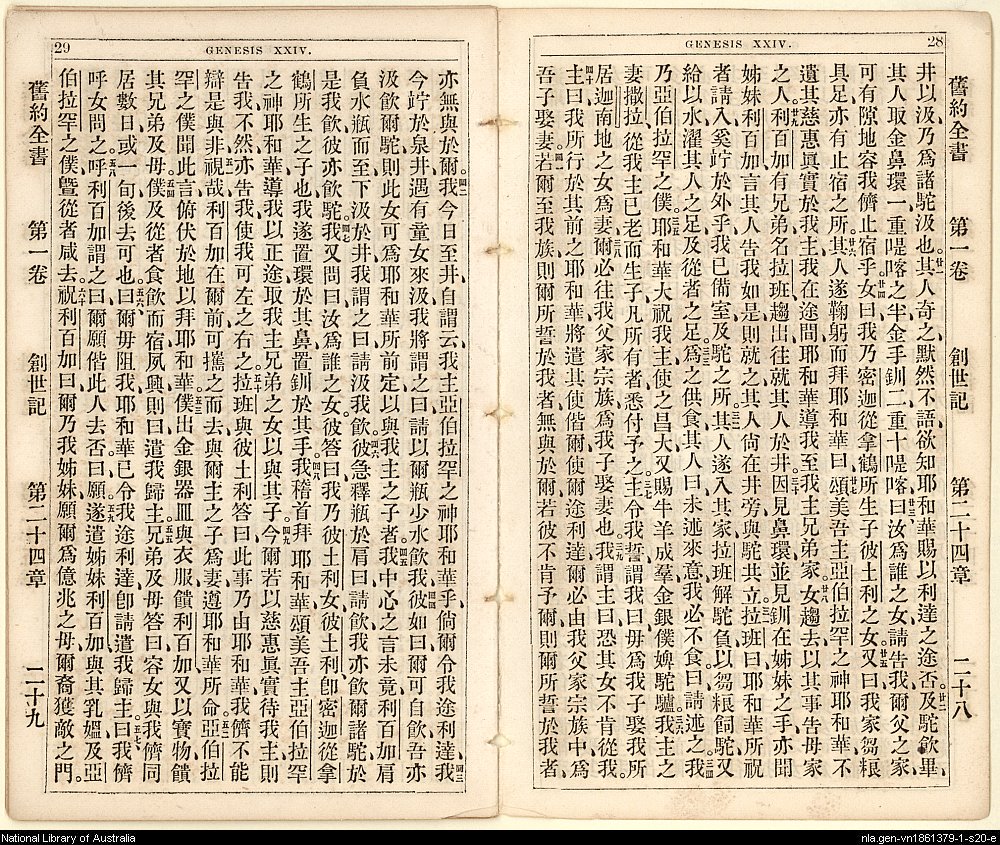 28
GENESIS XXIV.
舊約全書 第一卷 創世記 第二十四章 二十八
井、以汲乃爲諸駝汲也、廿一其人奇之、默然不語、欲知耶和華賜以利達之途否、廿二及駝飲畢、
其人取金鼻環一、重喤喀之半、金手釧二、重十喤喀、廿三曰、汝爲誰之女、請告我、爾父之家、
可有隙地容我儕止宿乎、廿四女曰、我乃密迦從拿鶴所生子彼土利之女、廿五又曰、我家芻粮
具足、亦有止宿之所、廿六其人遂鞠躬而拜耶和華曰、廿七頌美吾主亞伯拉罕之神耶和華、不
遺其慈惠眞實於我主、我在途間、耶和華導我至我主兄弟家、廿八女趨去、以其事告母家
之人、廿九利百加有兄弟名拉班、趨出往就其人於井、三十因見鼻環、並見釧在姊妹之手、亦聞
姊妹利百加言、其人告我如是、則就之、其人尚在井旁與駝共立、三一拉班曰、耶和華所祝
者、請入、奚竚於外乎、我已備室、及駝之所、三二其人遂入其家、拉班解駝負、以芻粮飼駝、又
給以水、濯其人之足、及從者之足、三三爲之供食、其人曰、未述來意、我必不食、曰、請述之、三四我
乃亞伯拉罕之僕、三五耶和華大祝我主、使之昌大、又賜牛羊成羣、金銀僕婢駝驢、三六我主之
妻撒拉、從我主已老而生子、凡所有者、悉付予之、三七主令我誓、謂我曰、毋爲我子娶我所
居迦南地之女爲妻、三八爾必往我父家宗族、爲我子娶妻也、三九我謂主曰、恐其女不肯從我、
四十主曰、我所行於其前之耶和華、將遣其使偕爾、使爾途利達、爾必由我父家宗族中、爲
吾子娶妻、四一若爾至我族、則爾所誓於我者、無與於爾、若彼不肯予爾、則爾所誓於我者、
29
GENESIS XXIV.
亦無與於爾、四二我今日至井、自謂云、我主亞伯拉罕之神耶和華乎、倘爾令我途利達、四三我
今竚於泉井、遇有童女來汲、我將謂之曰、請以爾瓶少水飲我、四四彼如曰、爾可自飲、吾亦
汲飲爾駝、則此女可爲耶和華所前定以與我主之子者、四五我中心之言未竟、利百加肩
負水瓶而至、下汲於井、我謂之曰、請汲我飲、四六彼急釋瓶於肩曰、請飲、我亦飲爾諸駝、於
是我飲、彼亦飲駝、四七我又問曰、汝爲誰之女、彼答曰、我乃彼土利女、彼土利、卽密迦從拿
鶴所生之子也、我遂置環於其鼻、置釧於其手、四八我稽首拜 耶和華、頌美吾主亞伯拉罕
之神耶和華、導我以正途、取我主兄弟之女、以與其子、四九今爾若以慈惠眞實待我主、則
告我、不然、亦告我、使我可左之右之、五十拉班與彼土利答曰、此事乃由耶和華、我儕不能
辯是與非、五一視哉、利百加在爾前、可攜之而去、與爾主之子爲妻、遵耶和華所命、五二亞伯拉
罕之僕聞此言、俯伏於地、以拜耶和華、五三僕出金銀器皿與衣服、饋利百加、又以寶物饋
其兄弟及母、五四僕及從者食飲而宿、夙興則曰、遣我歸主、五五兄弟及母答曰、容女與我儕同
居數日、或一旬後去可也、五六曰、爾毋阻我、耶和華已令我途利達、卽請遣我歸主、五七曰、我儕
呼女問之、五八呼利百加謂之曰、爾願偕此人去否、曰、願、五九遂遣姊妹利百加、與其乳媼、及亞
伯拉罕之僕、曁從者咸去、六十祝利百加曰、爾乃我姊妹、願爾爲億兆之母、爾裔獲敵之門、
舊約全書 第一卷 創世記 第二十四章 二十九
National Library of Australia
nla.gen-vn1861379-1-s20-e